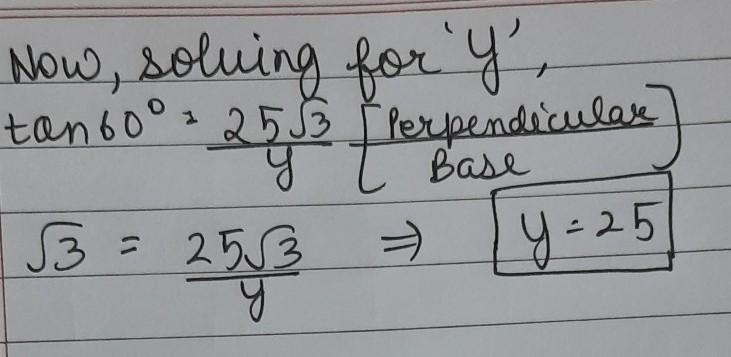 Now, solving for 'y',
tan60° = 25√3/y [Perpendicular/Base]
√3 = 25√3/y ⇒ y = 25